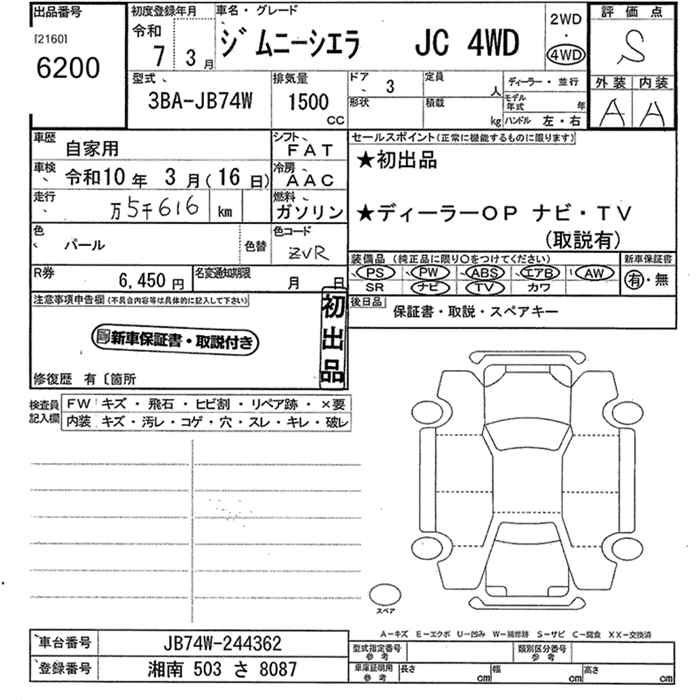 出品番号
[2160]
6200
初度登録年月
令和
7 3月
車名・グレード
ジムニーシエラ JC 4WD
2WD
・
4WD
評価点
S
外装 内装
A A
型式
3BA-JB74W
排気量
1500
CC
ドア 3
形状
定員 人
積載 kg
ディーラー・並行
モデル年式 年
ハンドル 左・右
車歴 自家用
シフト FAT
車検 令和10年 3月(16日)
冷房 AAC
走行 万5千616 km
燃料 ガソリン
色 パール
色替
色コード ZVR
R券 6,450円
名変通知期限 月 日
セールスポイント(正常に機能するものに限ります)
★初出品
★ディーラーOP ナビ・TV
(取説有)
装備品(純正品に限り○をつけてください)
PS PW ABS エアB AW
SR ナビ TV カワ
新車保証書
有・無
後日品
保証書・取説・スペアキー
注意事項申告欄(不具合内容等は具体的に記入して下さい)
新車保証書・取説付き
初出品
修復歴 有〔箇所
検査員記入欄
FW キズ・飛石・ヒビ割・リペア跡・×要
内装 キズ・汚レ・コゲ・穴・スレ・キレ・破レ
スペア
A−キズ E−エクボ U−凹み W−補修跡 S−サビ C−腐食 XX−交換済
車台番号 JB74W-244362
登録番号 湘南 503 さ 8087
型式指定番号 参考
類別区分番号 参考
車庫証明用 参考
長さ cm 幅 cm 高さ cm